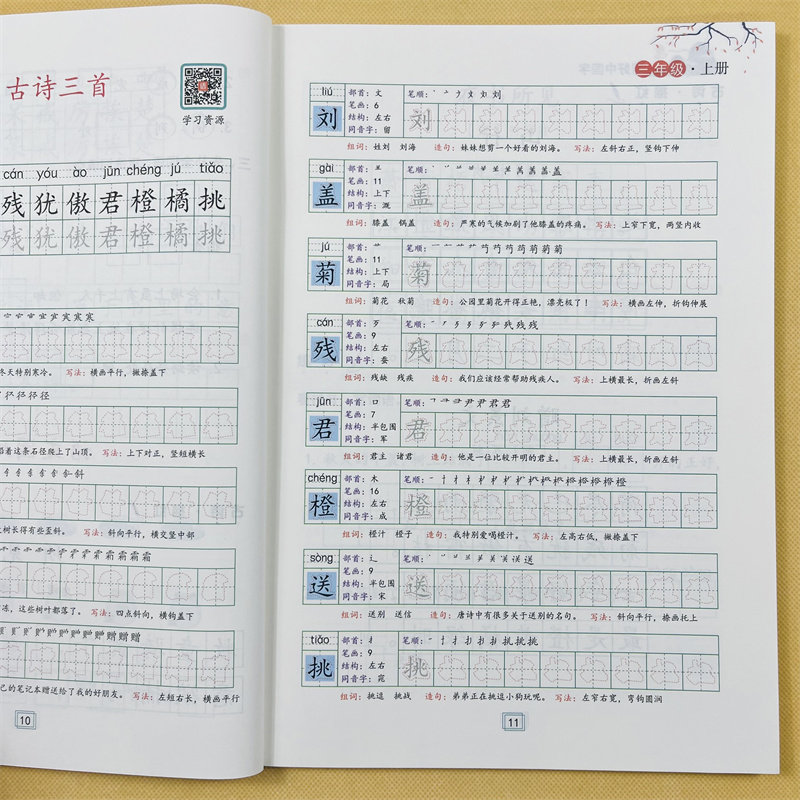 古诗三首
学习资源
cán yóu ào jūn chéng jú tiǎo
残 犹 傲 君 橙 橘 挑
残 犹 傲 君 橙 橘 挑
冬天特别寒冷。 写法：横画平行，撇捺盖下
着这条石径爬上了山顶。 写法：上下对正，竖短横长
树长得有些歪斜。 写法：斜向平行，横交竖中部
冻，这些树叶都落了。 写法：四点斜向，横钩盖下
己的笔记本赠送给了我的好朋友。 写法：左短右长，横画平行
10
三年级·上册
liú
刘
部首：文
笔画：6
结构：左右
同音字：留
笔顺：
刘
组词：姓刘 刘海 造句：妹妹想剪一个好看的刘海。 写法：左斜右正，竖钩下伸
gài
盖
部首：
笔画：11
结构：上下
同音字：溉
笔顺：
盖
组词：膝盖 锅盖 造句：严寒的气候加剧了他膝盖的疼痛。 写法：上窄下宽，两竖内收
jú
菊
部首：艹
笔画：11
结构：上下
同音字：局
笔顺：
菊
组词：菊花 秋菊 造句：公园里菊花开得正艳，漂亮极了！ 写法：横画左伸，折钩伸展
cán
残
部首：歹
笔画：9
结构：左右
同音字：蚕
笔顺：
残
组词：残缺 残疾 造句：我们应该经常帮助残疾人。 写法：上横最长，折画左斜
jūn
君
部首：口
笔画：7
结构：半包围
同音字：军
笔顺：
君
组词：君主 诸君 造句：他是一位比较开明的君主。 写法：上横最长，折画左斜
chéng
橙
部首：木
笔画：16
结构：左右
同音字：成
笔顺：
橙
组词：橙汁 橙子 造句：我特别爱喝橙汁。 写法：左高右低，撇捺盖下
sòng
送
部首：辶
笔画：9
结构：半包围
同音字：宋
笔顺：
送
组词：送别 送信 造句：唐诗中有很多关于送别的名句。 写法：斜向平行，捺画托上
tiǎo
挑
部首：扌
笔画：9
结构：左右
同音字：窕
笔顺：
挑
组词：挑逗 挑战 造句：弟弟正在挑逗小狗玩呢。 写法：左窄右宽，弯钩圆润
11